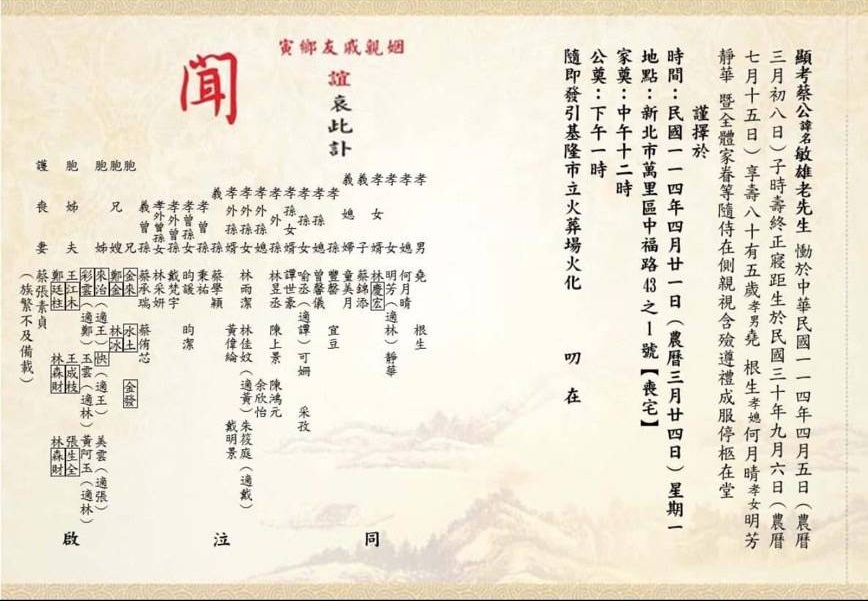 顯考蔡公諱名敏雄老先生 慟於中華民國一一四年四月五日（農曆
三月初八日）子時壽終正寢距生於民國三十年九月六日（農曆
七月十五日）享壽八十有五歲孝男堯 根生孝媳何月晴孝女明芳
靜華 暨全體家眷等隨侍在側親視含殮遵禮成服停柩在堂
謹擇於
時間：民國一一四年四月廿一日（農曆三月廿四日）星期一
地點：新北市萬里區中福路43之1號【喪宅】
家奠：中午十二時
公奠：下午一時
隨即發引基隆市立火葬場火化 叨在
姻親戚友鄉寅
誼哀此訃
聞
孝男 堯 根生
孝媳 何月晴
孝女 明芳（適林）靜華
孝女婿 林慶宏
義子 蔡錦添
義媳婦 童美月
孝孫 豐馨 宜豆
孝孫媳 曾馨儀
孝孫女 喻丞（適譚）可姍 采孜
孝孫女婿 譚世豪
孝外孫 林昱丞 陳上景 陳鴻元
孝外孫媳 余欣怡
孝外孫女 林雨潔 林佳妏（適黃）朱筱庭（適戴）
孝外孫女婿 黃偉綸 戴明景
義孫 蔡學穎
孝曾孫 秉祐
孝曾孫女 昀諼 昀潔
孝外曾孫 戴梵宇
孝外曾孫女 林采妍
義曾孫 蔡承瑞 蔡侑芯
胞兄 金來 水土 金發
胞兄嫂 鄭金 林冰
胞姊 來治（適王）快（適王）美雲（適張）
彩雲（適鄭）玉雲（適林）黃阿玉（適林）
胞姊夫 王江木 王成枝 張生全
鄭廷柱 林森財 林森財
護喪妻 蔡張素貞
（族繁不及備載）
同 注 啟